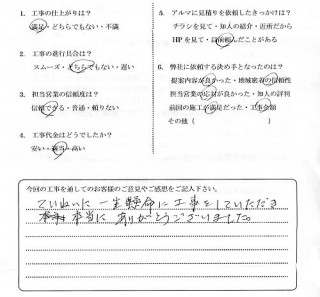 1. 工事の仕上がりは？
満足・どちらでもない・不満
2. 工事の進行具合は？
スムーズ・どちらでもない・遅い
3. 担当営業の信頼度は？
信頼できる・普通・頼りない
4. 工事代金はどうでしたか？
安い・妥当・高い
5. アルマに見積りを依頼したきっかけは？
チラシを見て・知人の紹介・近所だから
HPを見て・以前頼んだことがある
6. 弊社に依頼する決め手となったのは？
提案内容が良かった・地域密着の信頼性
担当営業の応対が良かった・知人の評判
前回の施工が満足だった・工事金額
その他（　　　）
今回の工事を通してのお客様のご意見やご感想をご記入下さい。
ていねいに一生懸命に工事をしていただき
本当に ありがとうございました。